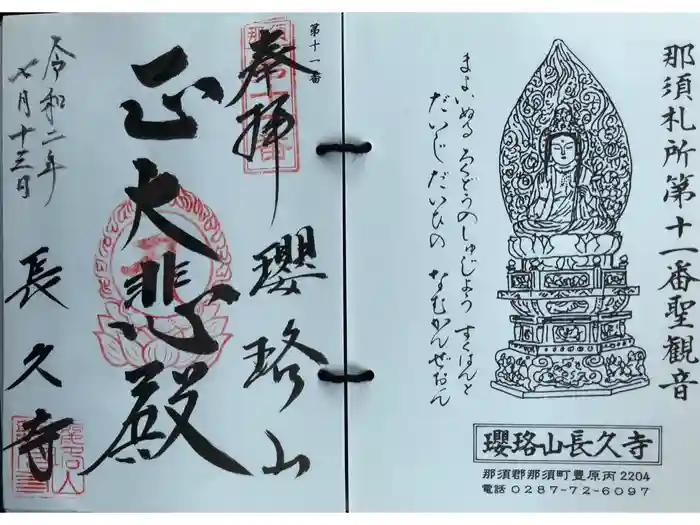 那須札所第十一番聖観音
まよいぬる ろくどうのしゅじょう すくはんと
だいじだいひの なむかんぜおん
瓔珞山長久寺
那須郡那須町豊原丙2204
電話 0287-72-6097
第十一番
奉拝
瓔珞山
正大悲殿
令和二年
七月十三日
長久寺